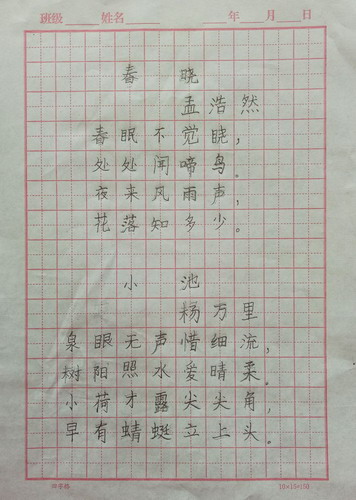 班级 姓名 年 月 日
春 晓
孟浩然
春眠不觉晓,
处处闻啼鸟。
夜来风雨声,
花落知多少。
小 池
杨万里
泉眼无声惜细流,
树阳照水爱晴柔。
小荷才露尖尖角,
早有蜻蜓立上头。